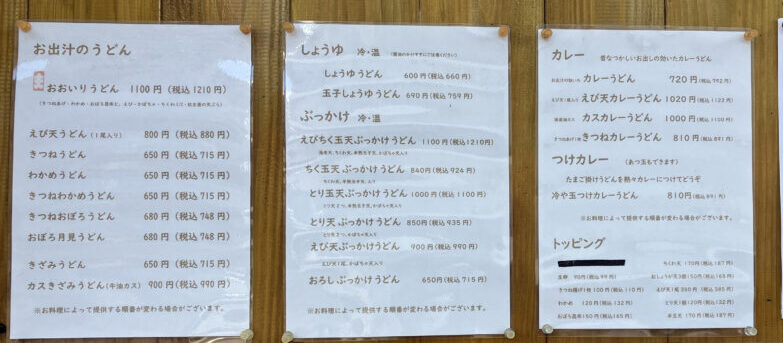 お出汁のうどん
おおいりうどん 1100円(税込1210円)
えび天うどん(1尾入り) 800円(税込880円)
きつねうどん 650円(税込715円)
わかめうどん 650円(税込715円)
きつねわかめうどん 650円(税込715円)
きつねおぼろうどん 680円(税込748円)
おぼろ月見うどん 680円(税込748円)
きざみうどん 650円(税込715円)
カスきざみうどん(牛油カス) 900円(税込990円)
※お料理によって提供する順番が変わる場合がございます。
しょうゆ 冷・温
しょうゆうどん 600円(税込660円)
玉子しょうゆうどん 690円(税込759円)
ぶっかけ 冷・温
えびちく玉天ぶっかけうどん 1100円(税込1210円)
ちく玉天ぶっかけうどん 840円(税込924円)
とり玉天ぶっかけうどん 1000円(税込1100円)
とり天ぶっかけうどん 850円(税込935円)
えび天ぶっかけうどん 900円(税込990円)
おろしぶっかけうどん 650円(税込715円)
※お料理によって提供する順番が変わる場合がございます。
カレー 昔なつかしいお出しの効いたカレーうどん
カレーうどん 720円(税込792円)
えび天カレーうどん 1020円(税込1122円)
カスカレーうどん 1000円(税込1100円)
きつねカレーうどん 810円(税込891円)
つけカレー (あつ玉もできます)
たまご掛けうどんを熱々カレーにつけてどうぞ
冷や玉つけカレーうどん 810円(税込891円)
※お料理によって提供する順番が変わる場合がございます。
トッピング
ちくわ天 170円(税込187円)
生卵 90円(税込99円)
おしょうが天3個(50円(税込165円)
きつね揚げ1枚100円(税込110円)
えび天1尾350円(税込385円)
わかめ 120円(税込132円)
とり天1個120円(税込132円)
おぼろ昆布150円(税込165円)
半玉天 170円(税込187円)